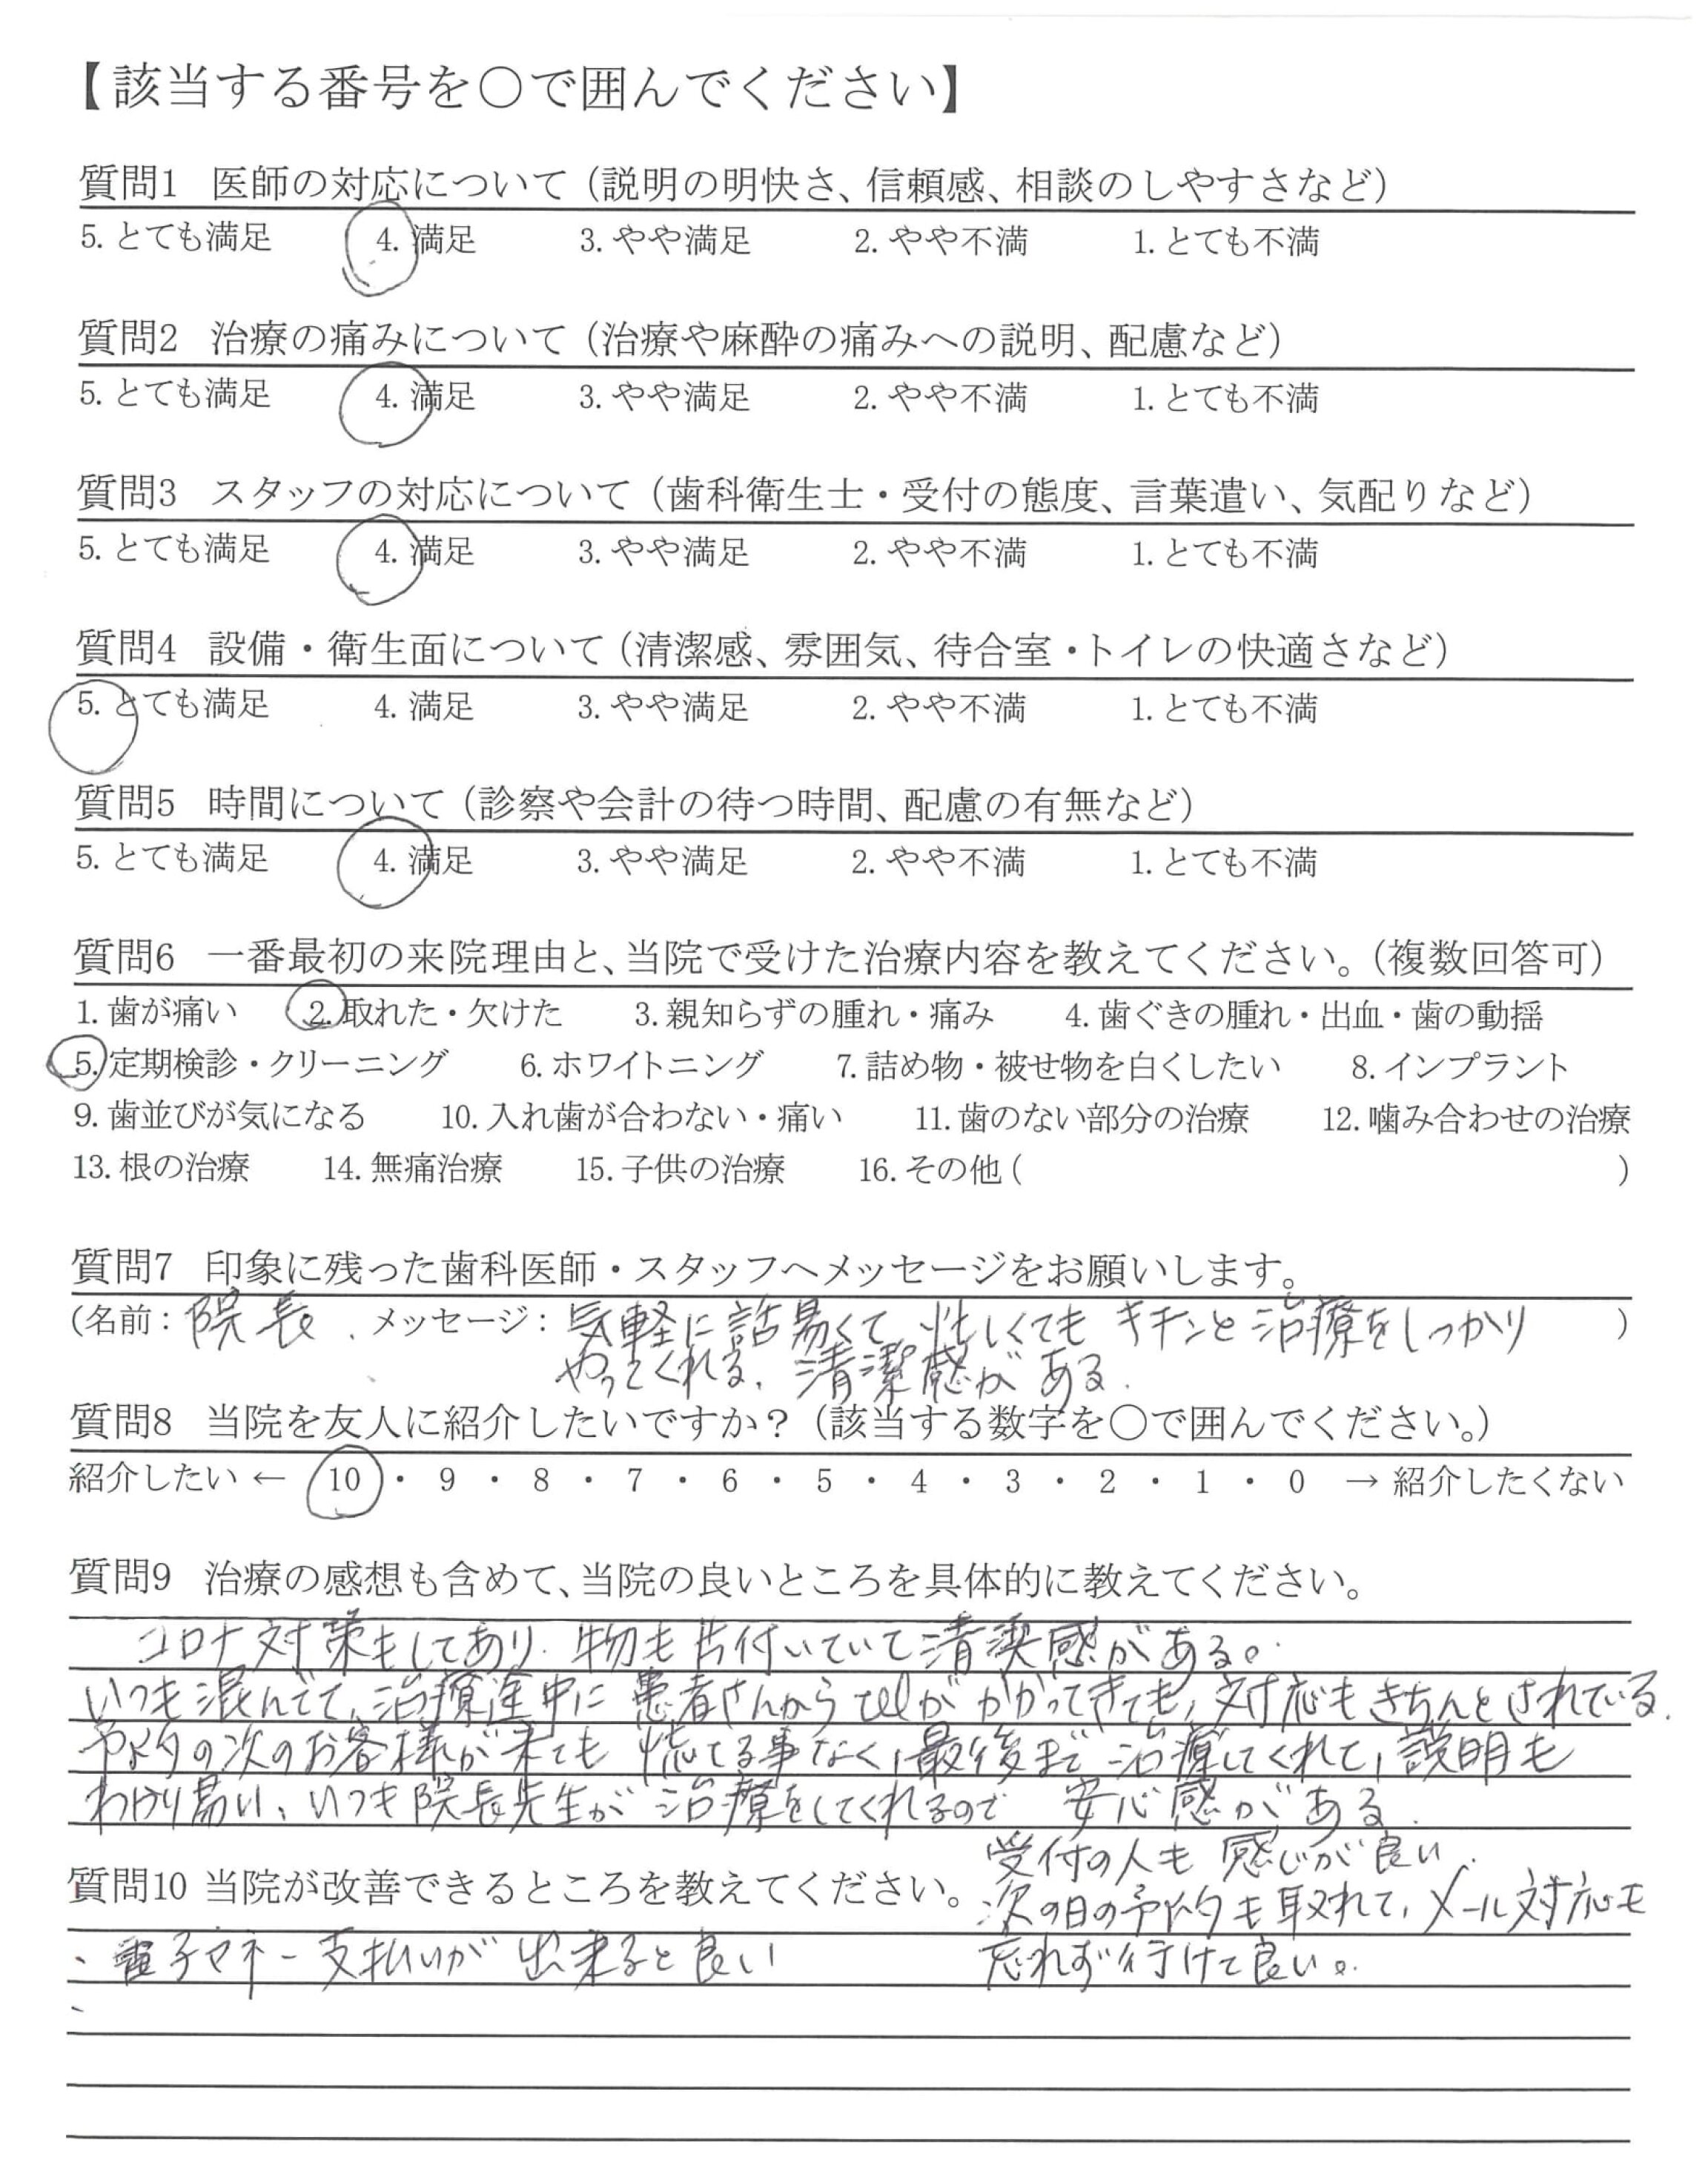 【該当する番号を〇で囲んでください】
質問1 医師の対応について（説明の明快さ、信頼感、相談のしやすさなど）
5. とても満足 4. 満足 3. やや満足 2. やや不満 1. とても不満
質問2 治療の痛みについて（治療や麻酔の痛みへの説明、配慮など）
5. とても満足 4. 満足 3. やや満足 2. やや不満 1. とても不満
質問3 スタッフの対応について（歯科衛生士・受付の態度、言葉遣い、気配りなど）
5. とても満足 4. 満足 3. やや満足 2. やや不満 1. とても不満
質問4 設備・衛生面について（清潔感、雰囲気、待合室・トイレの快適さなど）
5. とても満足 4. 満足 3. やや満足 2. やや不満 1. とても不満
質問5 時間について（診察や会計の待つ時間、配慮の有無など）
5. とても満足 4. 満足 3. やや満足 2. やや不満 1. とても不満
質問6 一番最初の来院理由と、当院で受けた治療内容を教えてください。（複数回答可）
1. 歯が痛い 2. 取れた・欠けた 3. 親知らずの腫れ・痛み 4. 歯ぐきの腫れ・出血・歯の動揺
5. 定期検診・クリーニング 6. ホワイトニング 7. 詰め物・被せ物を白くしたい 8. インプラント
9. 歯並びが気になる 10. 入れ歯が合わない・痛い 11. 歯のない部分の治療 12. 噛み合わせの治療
13. 根の治療 14. 無痛治療 15. 子供の治療 16. その他（ ）
質問7 印象に残った歯科医師・スタッフへメッセージをお願いします。
（名前：院長 、メッセージ：気軽に話易くて、忙しくてもキチンと治療をしっかり ）
やってくれる、清潔感がある.
質問8 当院を友人に紹介したいですか？（該当する数字を〇で囲んでください。）
紹介したい ← 10 ・ 9 ・ 8 ・ 7 ・ 6 ・ 5 ・ 4 ・ 3 ・ 2 ・ 1 ・ 0 → 紹介したくない
質問9 治療の感想も含めて、当院の良いところを具体的に教えてください。
コロナ対策もしてあり、物も片付いていて清潔感がある。
いつも混んでて、治療途中に患者さんからtelがかかってきても、対応もきちんとされている.
予約の次のお客様が来ても慌てる事なく、最後まで治療してくれて、説明も
わかり易い、いつも院長先生が治療をしてくれるので 安心感がある.
受付の人も感じが良い.
質問10 当院が改善できるところを教えてください。
次の日の予約も取れて、メール対応も
忘れず行けて良い。
、電子マネー支払いが出来ると良い
、